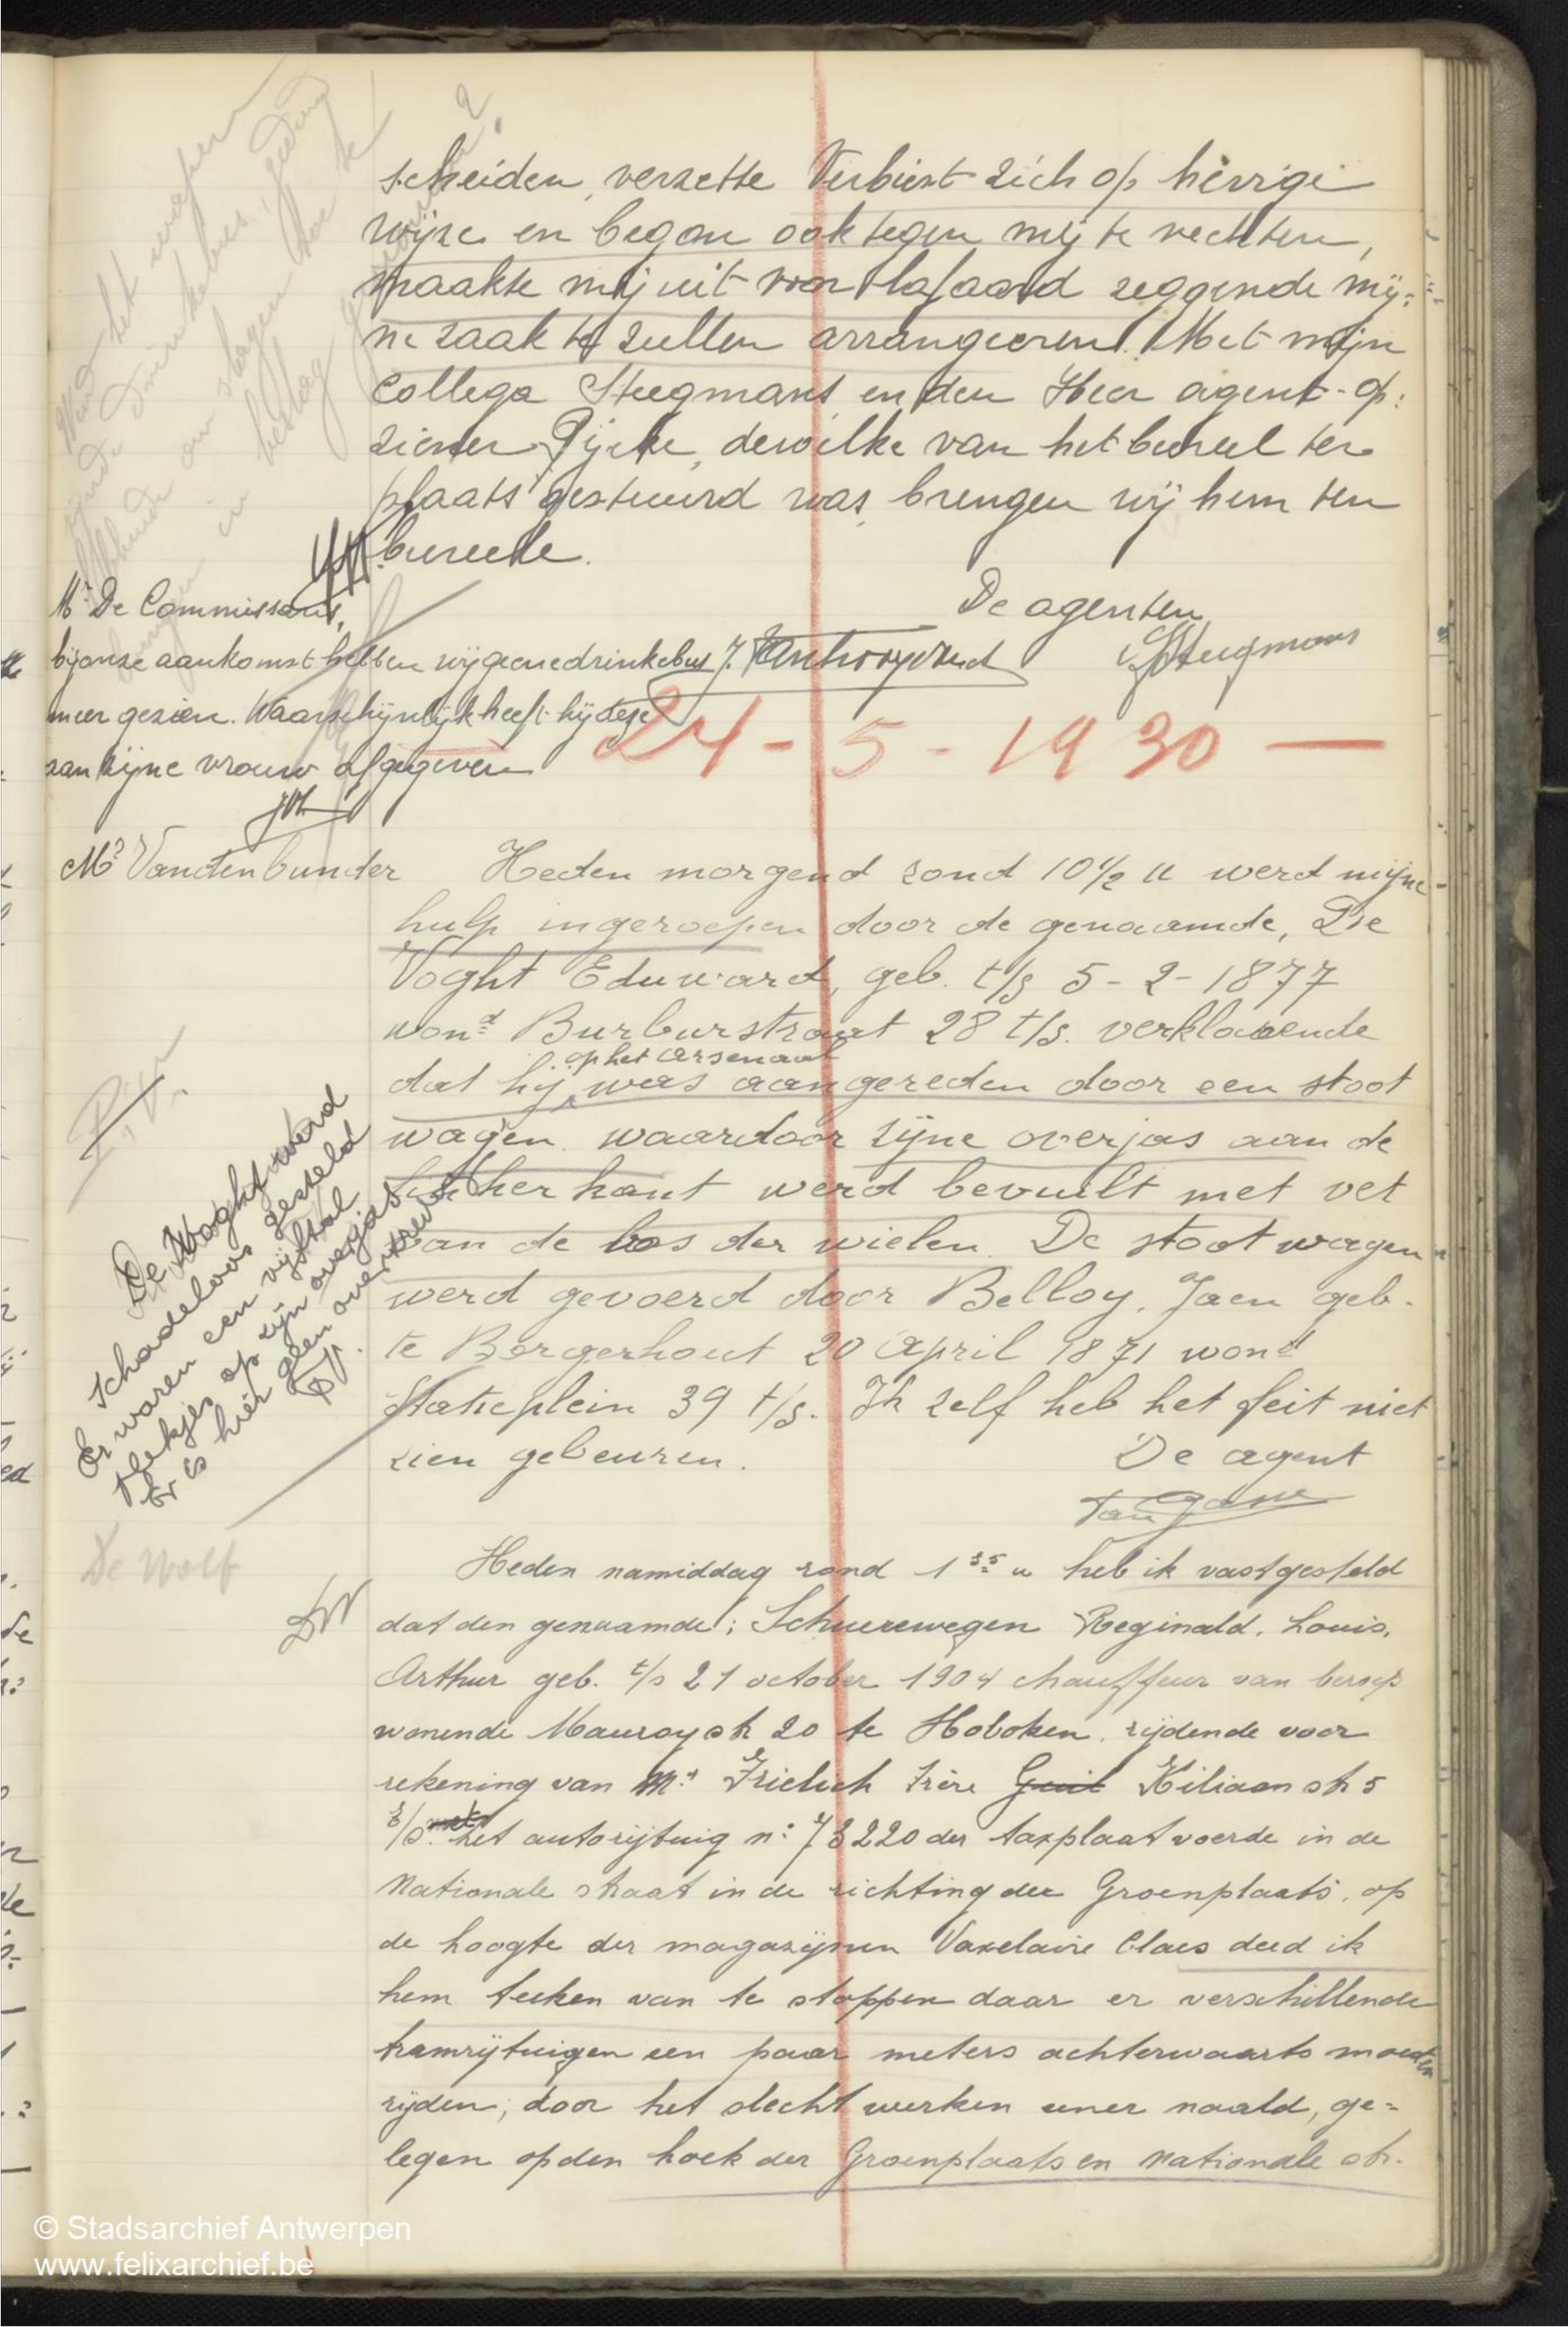 scheiden, verzette Verbiest zich op hevige
wijze en begon ook tegen mij te vechten,
maakte mij uit voor lafaard zeggende mij:
ne zaak te zullen arrangeeren. Met mijn
collega Steegmans en den Heer agent-op:
ziener, dewelke van het bureel ter
plaats gestuurd was, brengen wij hem ten
bureele.
De agenten
Mr De Commissaris,
bij onze aankomst hebben wij geene drinkebus
meer gezien. Waarschijnlijk heeft hij deze
aan zijne vrouw afgegeven
Steegmans
24-5-1930 —
Mr Vandenbunder
Heden morgend rond 10 1/2 u werd mijne
hulp ingeroepen door de genaamde, De
Voght Eduward, geb. t/s 5-2-1877
wond Burburstraat 28 t/s. verklarende
dat hij op het arsenaal was aangereden door een stoot
wagen waardoor zijne overjas aan de
linkher kant werd bevuilt met vet
van de bos der wielen. De stootwagen
werd gevoerd door Belloy, Jaen geb.
te Borgerhout 20 April 1871 wond
Statieplein 39 t/s. Ik zelf heb het feit niet
zien gebeuren.
De agent
De Voght werd
schadeloos gesteld
Er waren een vijftal
plekjes op zijn overjas
Er is hier geen overtred.
De Wolf
DW
Heden namiddag rond 1 35 u heb ik vastgesteld
dat den genaamde: Schuerewegen Reginald, Louis,
Arthur geb. t/s 21 october 1904 chauffeur van beroep
wonende Mauroystr 20 te Hoboken, rijdende voor
rekening van Mr Frielich frère Guil Kiliaanstr 5
t/s. met het autorijtuig n: 73220 der taxplaat voerde in de
Nationale straat in de richting der Groenplaats, op
de hoogte der magazijnen Vaxelaire Claes deed ik
hem teeken van te stoppen daar er verschillende
tramrijtuigen een paar meters achterwaarts moesten
rijden, door het slecht werken eener naald, ge=
legen op den hoek der Groenplaats en Nationale str.
© Stadsarchief Antwerpen
www.felixarchief.be